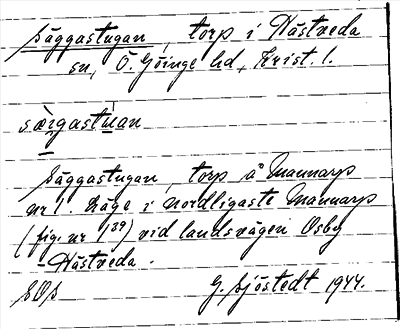 Säggastugan, torp i Hästveda
sn, Ö. Göinge hd, Krist. l.
særgastuan
Säggastugan, torp å Mannarp
nr 1. Läge i nordligaste Mannarp
(fig. nr 1³⁹) vid landsvägen Osby
- Hästveda.
SOS G. Sjöstedt 1944.